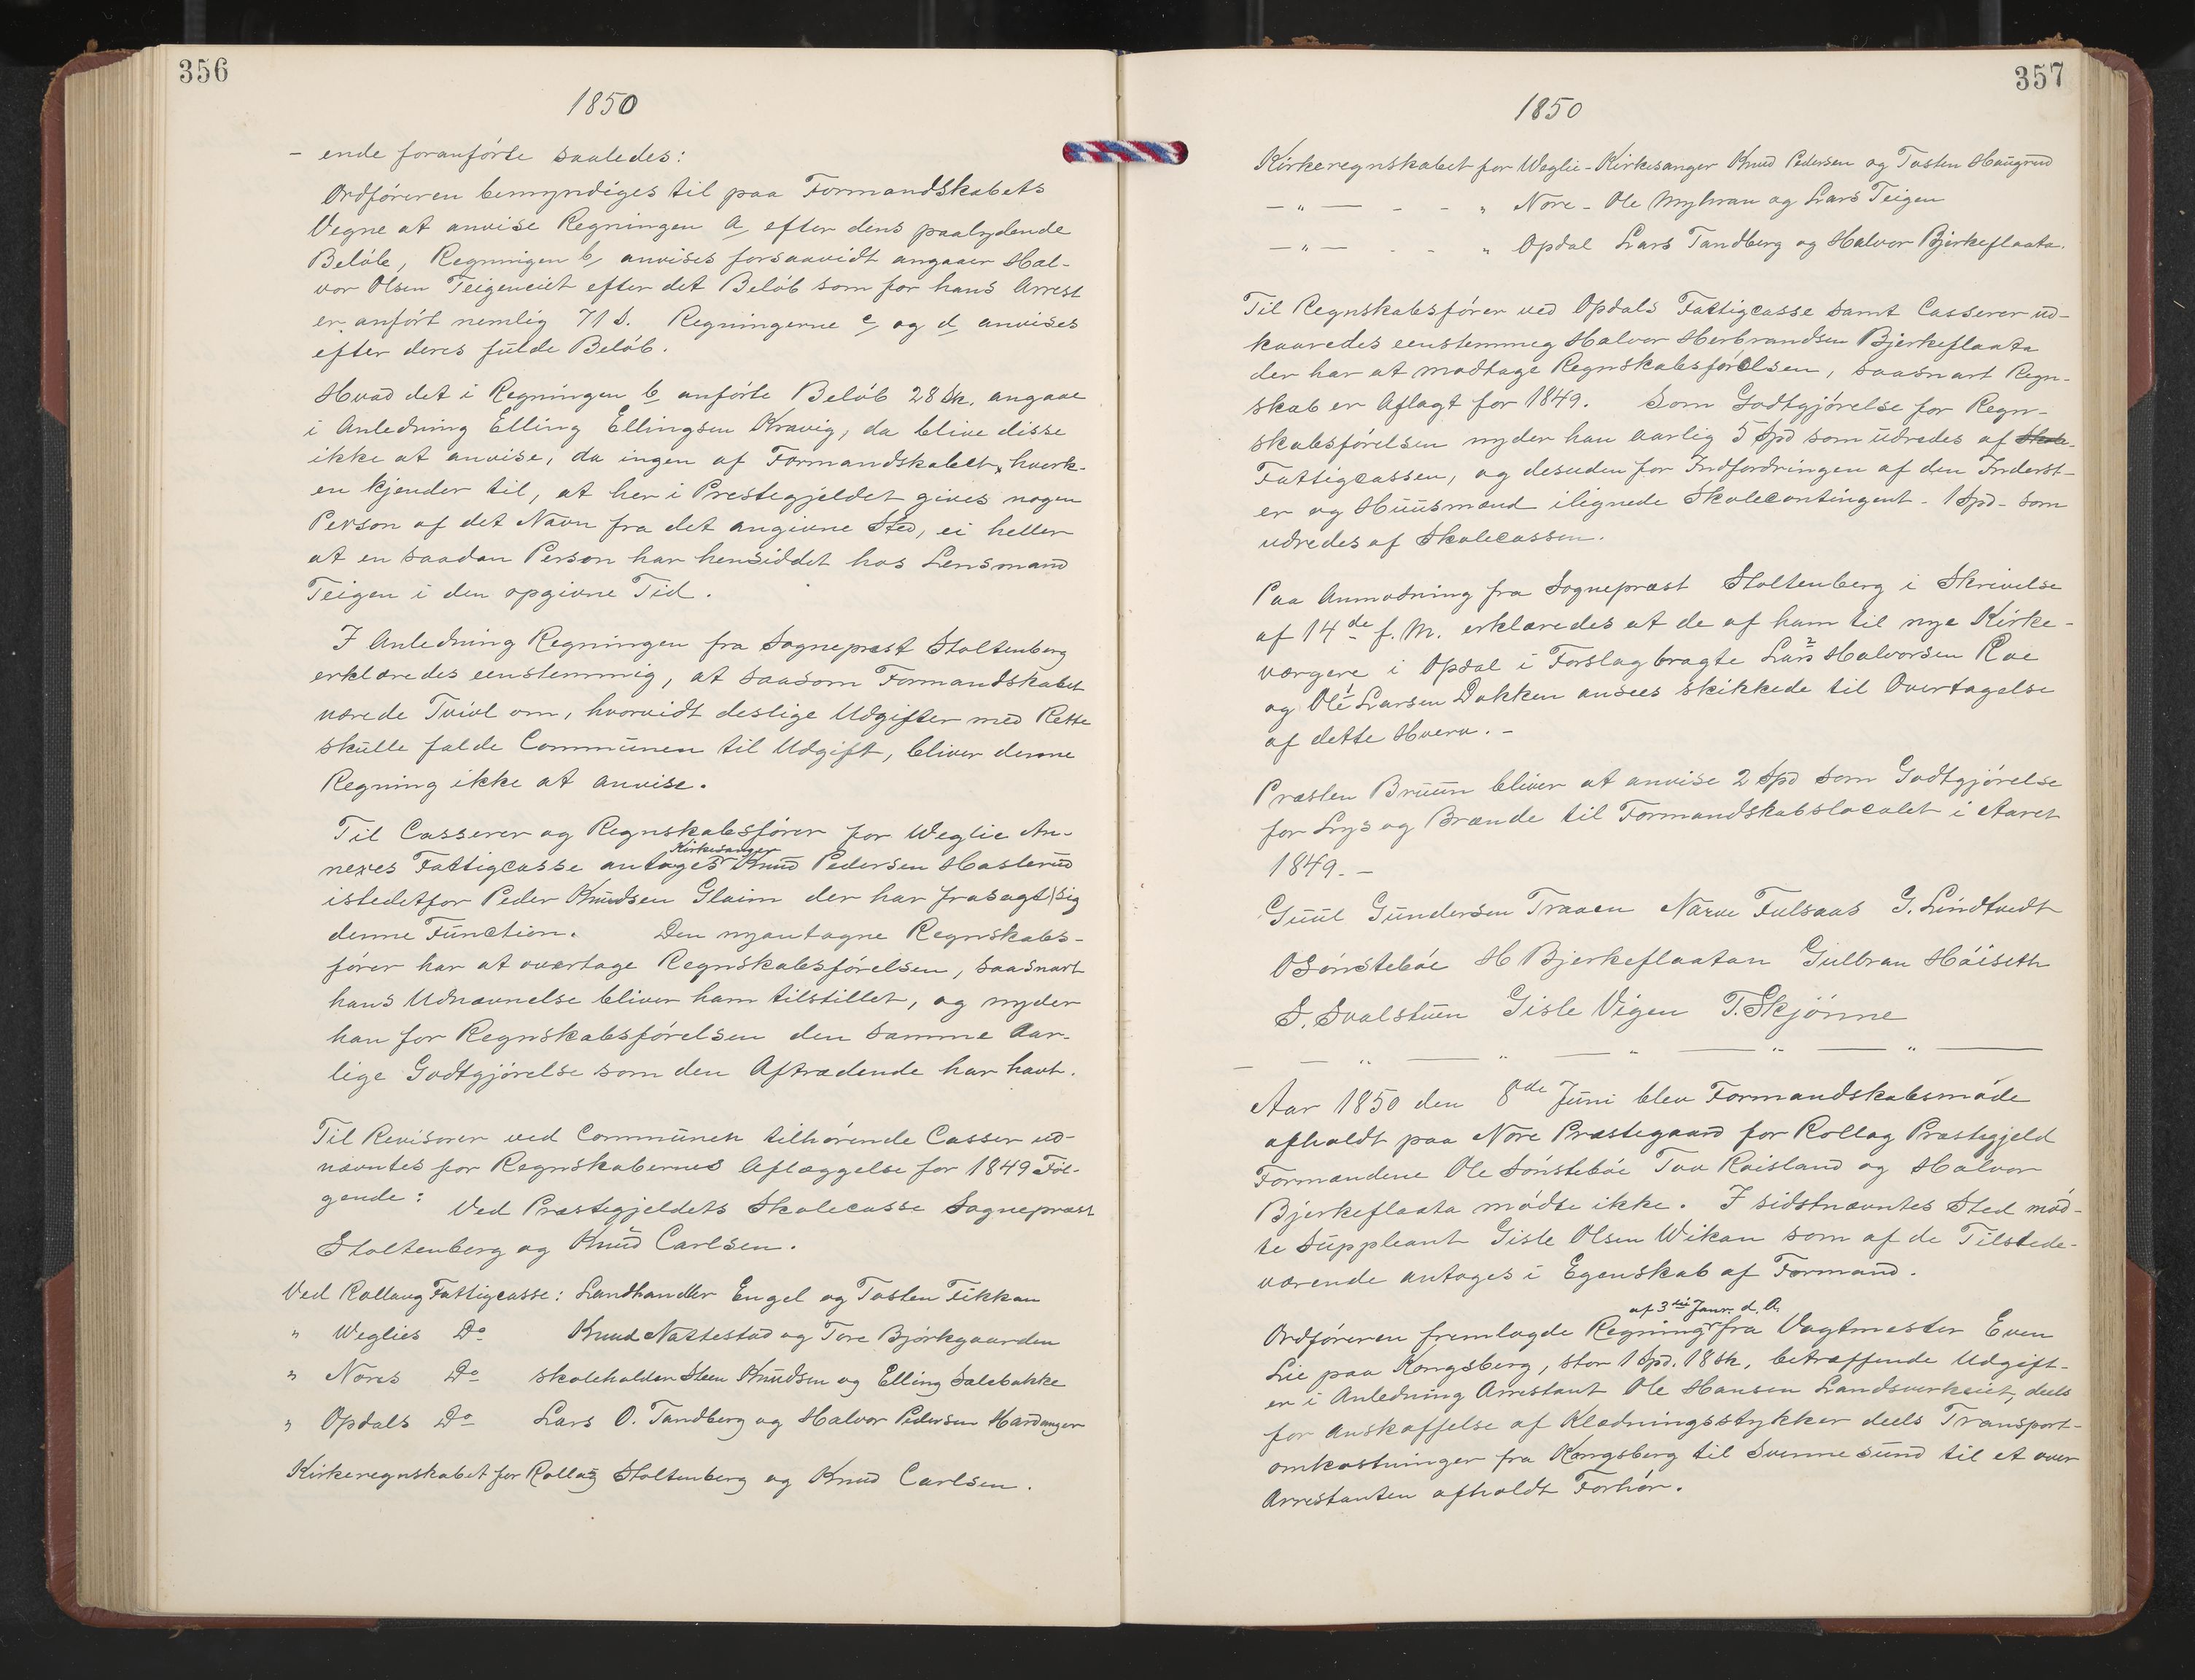 356
1850
- ende foranførte saaledes:
Ordføreren bemyndiges til paa Formandskabets
Vegne at anvise Regningen a, efter dens paalydende
Beløb, Regningen b, anvises forsaavidt angaaer Hal-
vor Olsen Teigeneiet efter det Beløb som for hans Arrest
er anført nemlig 71 s. Regningerne c, og d, anvises
efter deres fulde Beløb.
Hvad det i Regningen b, anførte Beløb 28 sk. angaae
i Anledning Elling Ellingsen Kravig, da blive disse
ikke at anvise, da ingen af Formandskabet, hverk-
en kjender til, at her i Prestegjeldet gives nogen
Person af det Navn fra det angivne Sted, ei heller
at en saadan Person har hensiddet hos Lensmand
Teigen i den opgivne Tid.
I Anledning Regningen fra Sognepræst Stoltenberg
erklæredes eenstemmig, at saasom Formandskabet
nærede Tvivl om, hvorvidt deslige Udgifter med Rette
skulle falde Communen til Udgift, bliver denne
Regning ikke at anvise.
Til Casserer og Regnskabsfører for Weglie An-
Kirkesanger
nexes Fattigcasse antages Knud Pedersen Haslerud
istedetfor Peder Knudsen Glaim der har frasagt sig
denne Function. Den nyantagne Regnskabs-
fører har at overtage Regnskabsførelsen, saasnart
hans Udnævnelse bliver ham tilstillet, og nyder
han for Regnskabsførelsen den samme Aar-
lige Godtgjørelse som den Aftrædende har havt.
Til Revisorer ved Communen tilhørende Casser ud-
nævntes for Regnskabernes Aflæggelse for 1849 Føl-
gende: Ved Præstegjeldets Skolecasse Sognepræst
Stoltenberg og Knud Carlsen.
Ved Rollaug Fattigcasse: Landhandler Engel og Tosten Fikkan
" Weglies Do Knud Nattestad og Tore Bjørkgaarden
" Nores Do skoleholder Steen Knudsen og Elling Salebakke
" Opdals Do Lars O. Tandberg og Halvor Pedersen Hardanger
Kirkeregnskabet for Rollag Stoltenberg og Knud Carlsen.
357
1850
Kirkeregnskabet for Weglie - Kirkesanger Knud Pedersen og Tosten Haugrud
- " - - - " Nore - Ole Myhran og Lars Teigen
- " - - - " Opdal Lars Tandberg og Halvor Bjerkeflaata.
Til Regnskabsfører ved Opdals Fattigcasse samt Casserer ud-
kaaredes eenstemmeg Halvor Herbrandsen Bjerkeflaata
der har at modtage Regnskabsførelsen, saasnart Regn-
skab er Aflagt for 1849. Som Godtgjørelse for Regn-
skabsførelsen nyder han aarlig 5 Spd som udredes af Skole-
Fattigcassen, og desuden for Indfordringen af den Inderst-
er og Huusmænd ilignede Skolecontingent - 1 Spd - som
udredes af Skolecassen.
Paa Anmodning fra Sognepræst Stoltenberg i Skrivelse
af 14de f. M. erklæredes at de af ham til nye Kirke-
værgere i Opdal i Forslag bragte Lars 2 Halvorsen Roe
og Ole 1 Larsen Dokken ansees skikkede til Overtagelse
af dette Hverv. -
Præsten Bruun bliver at anvise 2 Spd som Godtgjørelse
for Lys og Brænde til Formandskabslocalet i Aaret
1849. -
Guul Gundersen Traaen Narve Fulsaas G. Lindtvedt
O Sønstebøe H Bjerkeflaatan Gulbran Høiseth
S. Svalstuen Gisle Vigen T. Skjønne
Aar 1850 den 8de Juni blev Formandskabsmøde
afholdt paa Nore Præstegaard for Rollag Præstegjeld
Formændene Ole Sønstebøe Tov Roisland og Halvor
Bjerkeflaata mødte ikke. I sidstnævntes Sted mød-
te Suppleant Gisle Olsen Wikan som af de Tilstede-
værende antoges i Egenskab af Formand.
af 3die Janr. d. A.
Ordføreren fremlagde Regning fra Vagtmester Even
Lie paa Kongsberg, stor 1 Spd. 18 sk, betræffende Udgift-
er i Anledning Arrestant Ole Hansen Landsverkeiet, deels
for Anskaffelse af Klædningsstykker deels Transport-
omkostninger fra Kongsberg til Svennesund til et over
Arrestanten afholdt Forhør.